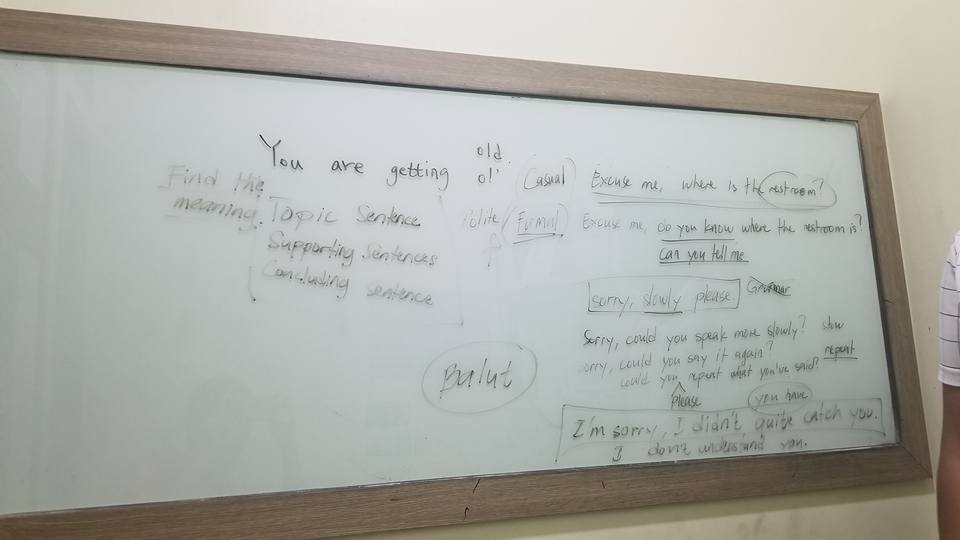 You are getting old.
ol'
Find the meaning.
Topic Sentence
Supporting Sentences
Concluding sentence
Casual Excuse me, where is the restroom?
Polite Formal Excuse me, do you know where the restroom is?
can you tell me
sorry, slowly please Grammar
Sorry, could you speak more slowly? slow
orry, could you say it again? repeat
could you repeat what you've said?
please you have
Balut
I'm sorry, I didn't quite catch you.
I don't understand you.